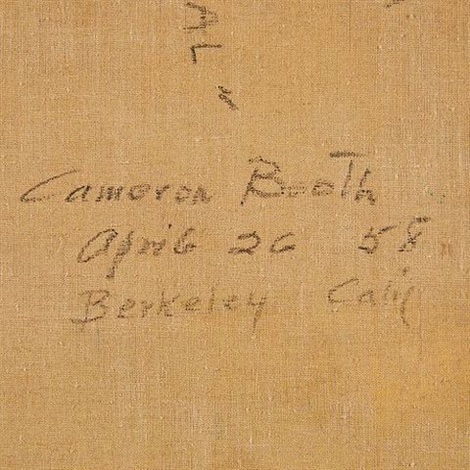 AL
Cameron Booth
April 26 58
Berkeley Calif